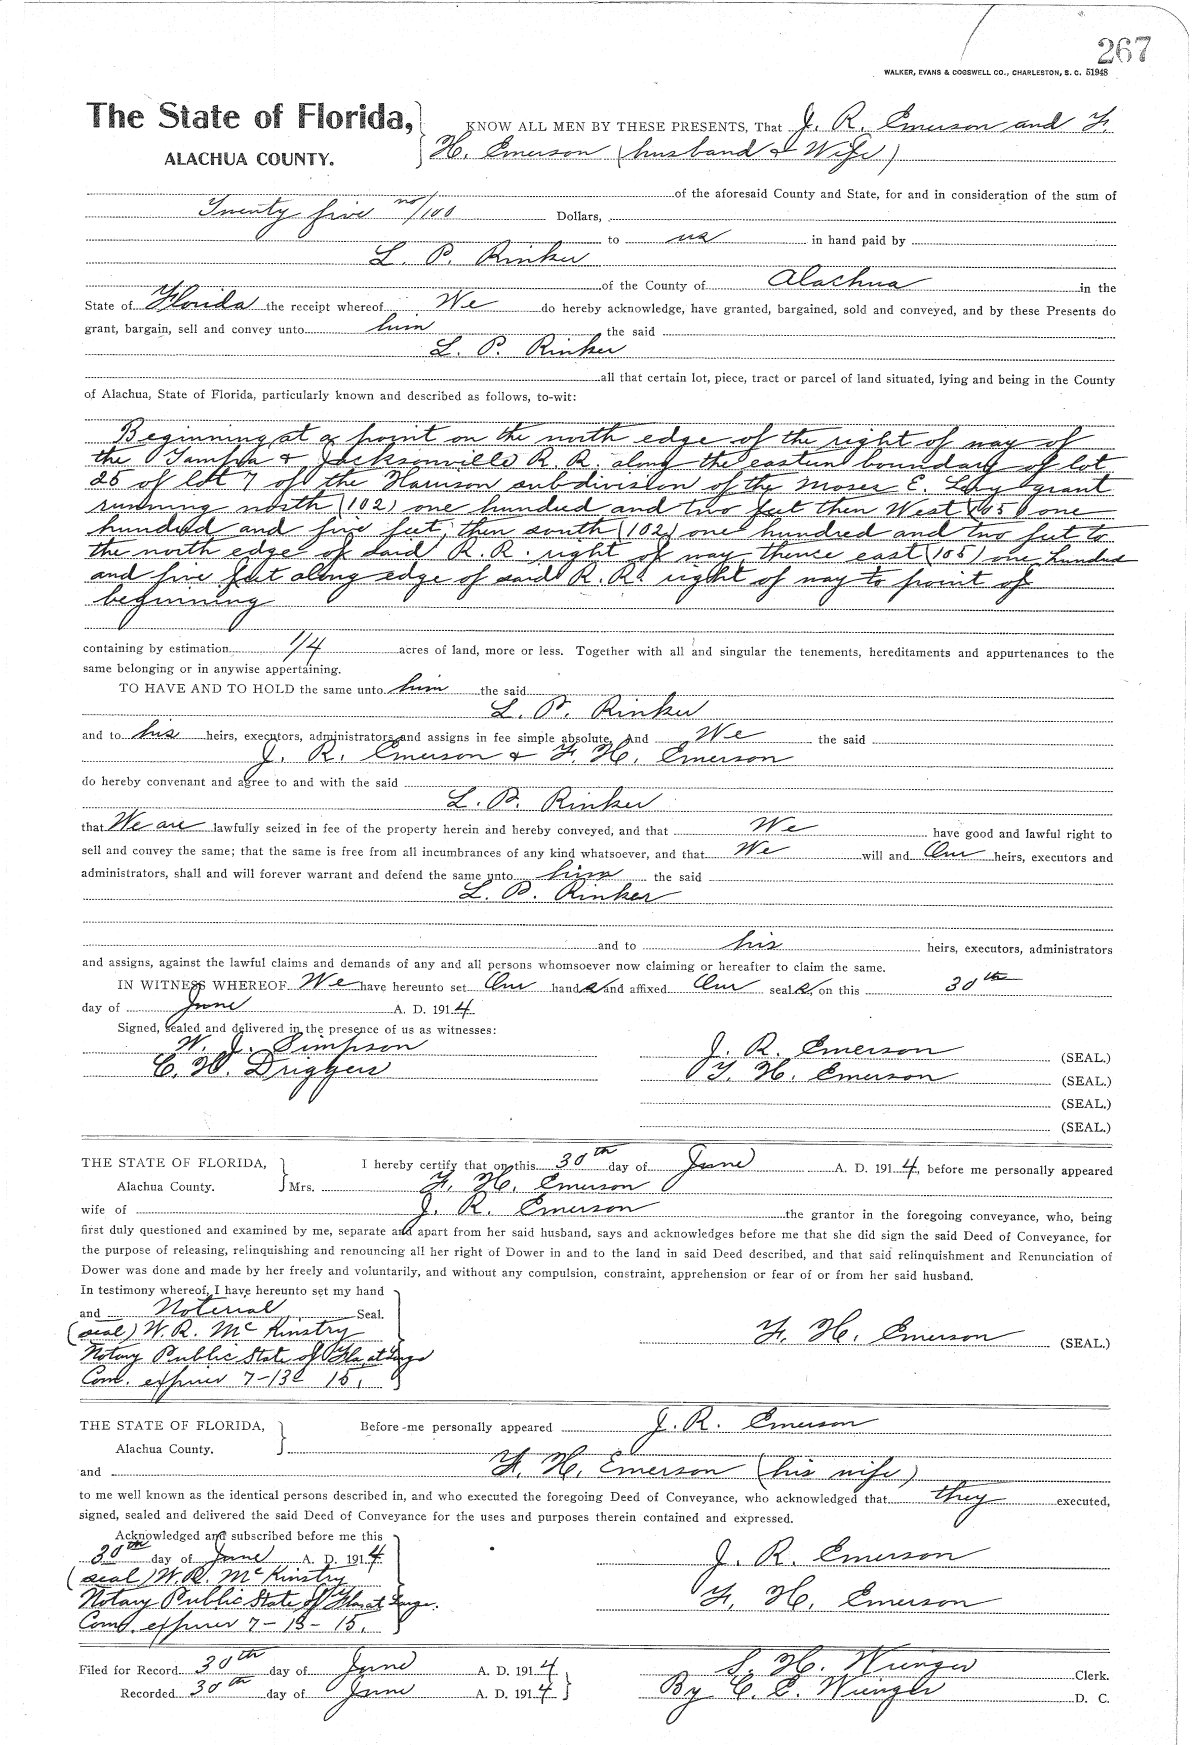 267
WALKER, EVANS & COGSWELL CO., CHARLESTON, S. C. 51948
The State of Florida,
ALACHUA COUNTY.
KNOW ALL MEN BY THESE PRESENTS, That J. R. Emerson and F.
H. Emerson (husband & Wife)
of the aforesaid County and State, for and in consideration of the sum of
Twenty five no/100 Dollars,
to us in hand paid by
L. P. Rinker
of the County of Alachua in the
State of Florida the receipt whereof We do hereby acknowledge, have granted, bargained, sold and conveyed, and by these Presents do
grant, bargain, sell and convey unto him the said
L. P. Rinker
all that certain lot, piece, tract or parcel of land situated, lying and being in the County
of Alachua, State of Florida, particularly known and described as follows, to-wit:
Beginning at a point on the north edge of the right of way of
the Tampa & Jacksonville R. R. along the eastern boundary of lot
25 of lot 7 of the Harrison subdivision of the Moser E. Levy grant
running north (102) one hundred and two feet then West (105) one
hundred and five feet, then south (102) one hundred and two feet to
the north edge of said R. R. right of way thence east (105) one hundred
and five feet along edge of said R. R. right of way to point of
beginning
containing by estimation 1/4 acres of land, more or less. Together with all and singular the tenements, hereditaments and appurtenances to the
same belonging or in anywise appertaining.
TO HAVE AND TO HOLD the same unto him the said
L. P. Rinker
and to his heirs, executors, administrators and assigns in fee simple absolute. And We the said
J. R. Emerson & F. H. Emerson
do hereby convenant and agree to and with the said
L. P. Rinker
that We are lawfully seized in fee of the property herein and hereby conveyed, and that We have good and lawful right to
sell and convey the same; that the same is free from all incumbrances of any kind whatsoever, and that We will and Our heirs, executors and
administrators, shall and will forever warrant and defend the same unto him the said
L. P. Rinker
and to his heirs, executors, administrators
and assigns, against the lawful claims and demands of any and all persons whomsoever now claiming or hereafter to claim the same.
IN WITNESS WHEREOF We have hereunto set Our hands and affixed Our seals, on this 30th
day of June A. D. 1914
Signed, sealed and delivered in the presence of us as witnesses:
W. J. Simpson
C. W. Driggers
J. R. Emerson (SEAL.)
F. H. Emerson (SEAL.)
(SEAL.)
(SEAL.)
THE STATE OF FLORIDA,
Alachua County.
I hereby certify that on this 30th day of June A. D. 1914, before me personally appeared
Mrs. F. H. Emerson
wife of J. R. Emerson the grantor in the foregoing conveyance, who, being
first duly questioned and examined by me, separate and apart from her said husband, says and acknowledges before me that she did sign the said Deed of Conveyance, for
the purpose of releasing, relinquishing and renouncing all her right of Dower in and to the land in said Deed described, and that said relinquishment and Renunciation of
Dower was done and made by her freely and voluntarily, and without any compulsion, constraint, apprehension or fear of or from her said husband.
In testimony whereof, I have hereunto set my hand
and Noterial Seal.
(seal) W. R. McKinstry
Notary Public State of Fla at Large
Com. expires 7-13- 15.
F. H. Emerson (SEAL.)
THE STATE OF FLORIDA,
Alachua County.
Before me personally appeared J. R. Emerson
and F. H. Emerson (his wife)
to me well known as the identical persons described in, and who executed the foregoing Deed of Conveyance, who acknowledged that they executed,
signed, sealed and delivered the said Deed of Conveyance for the uses and purposes therein contained and expressed.
Acknowledged and subscribed before me this
30th day of June A. D. 1914
(seal) W. R. McKinstry
Notary Public State of Fla at Large.
Com. expires 7-13-15.
J. R. Emerson
F. H. Emerson
Filed for Record 30th day of June A. D. 1914
Recorded 30th day of June A. D. 1914
S. H. Wienges Clerk.
By C. E. Wienges D. C.